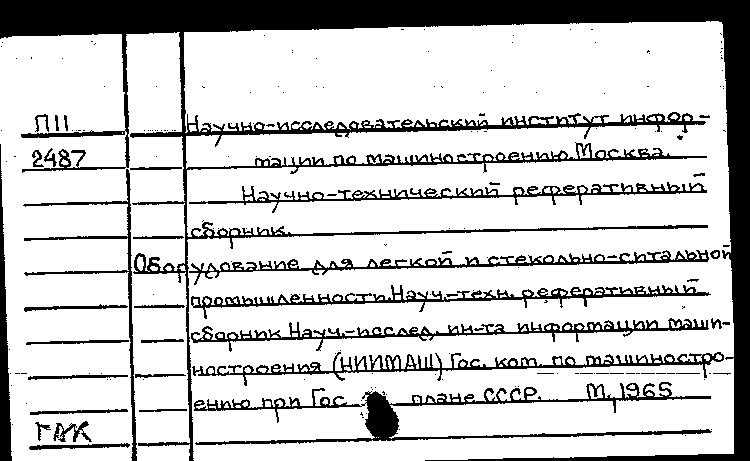 П11
2487
Научно-исследовательский институт инфор-
мации по машиностроению. Москва.
Научно-технический реферативный
сборник.
Оборудование для легкой и стекольно-ситальной
промышленности. Науч.-техн. реферативный
сборник Науч.-исслед. ин-та информации маши-
ностроения (НИИМАШ) Гос. ком. по машиностро-
ению при Гос плане СССР. М, 1965